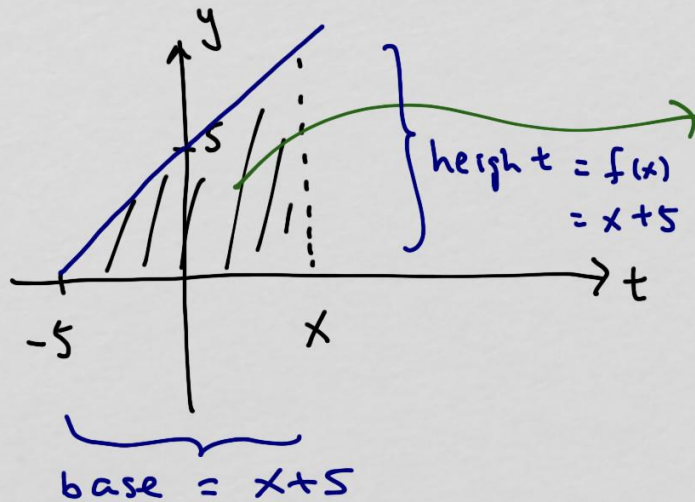 y
5
height = f(x)
= x+5
t
-5
x
base = x+5